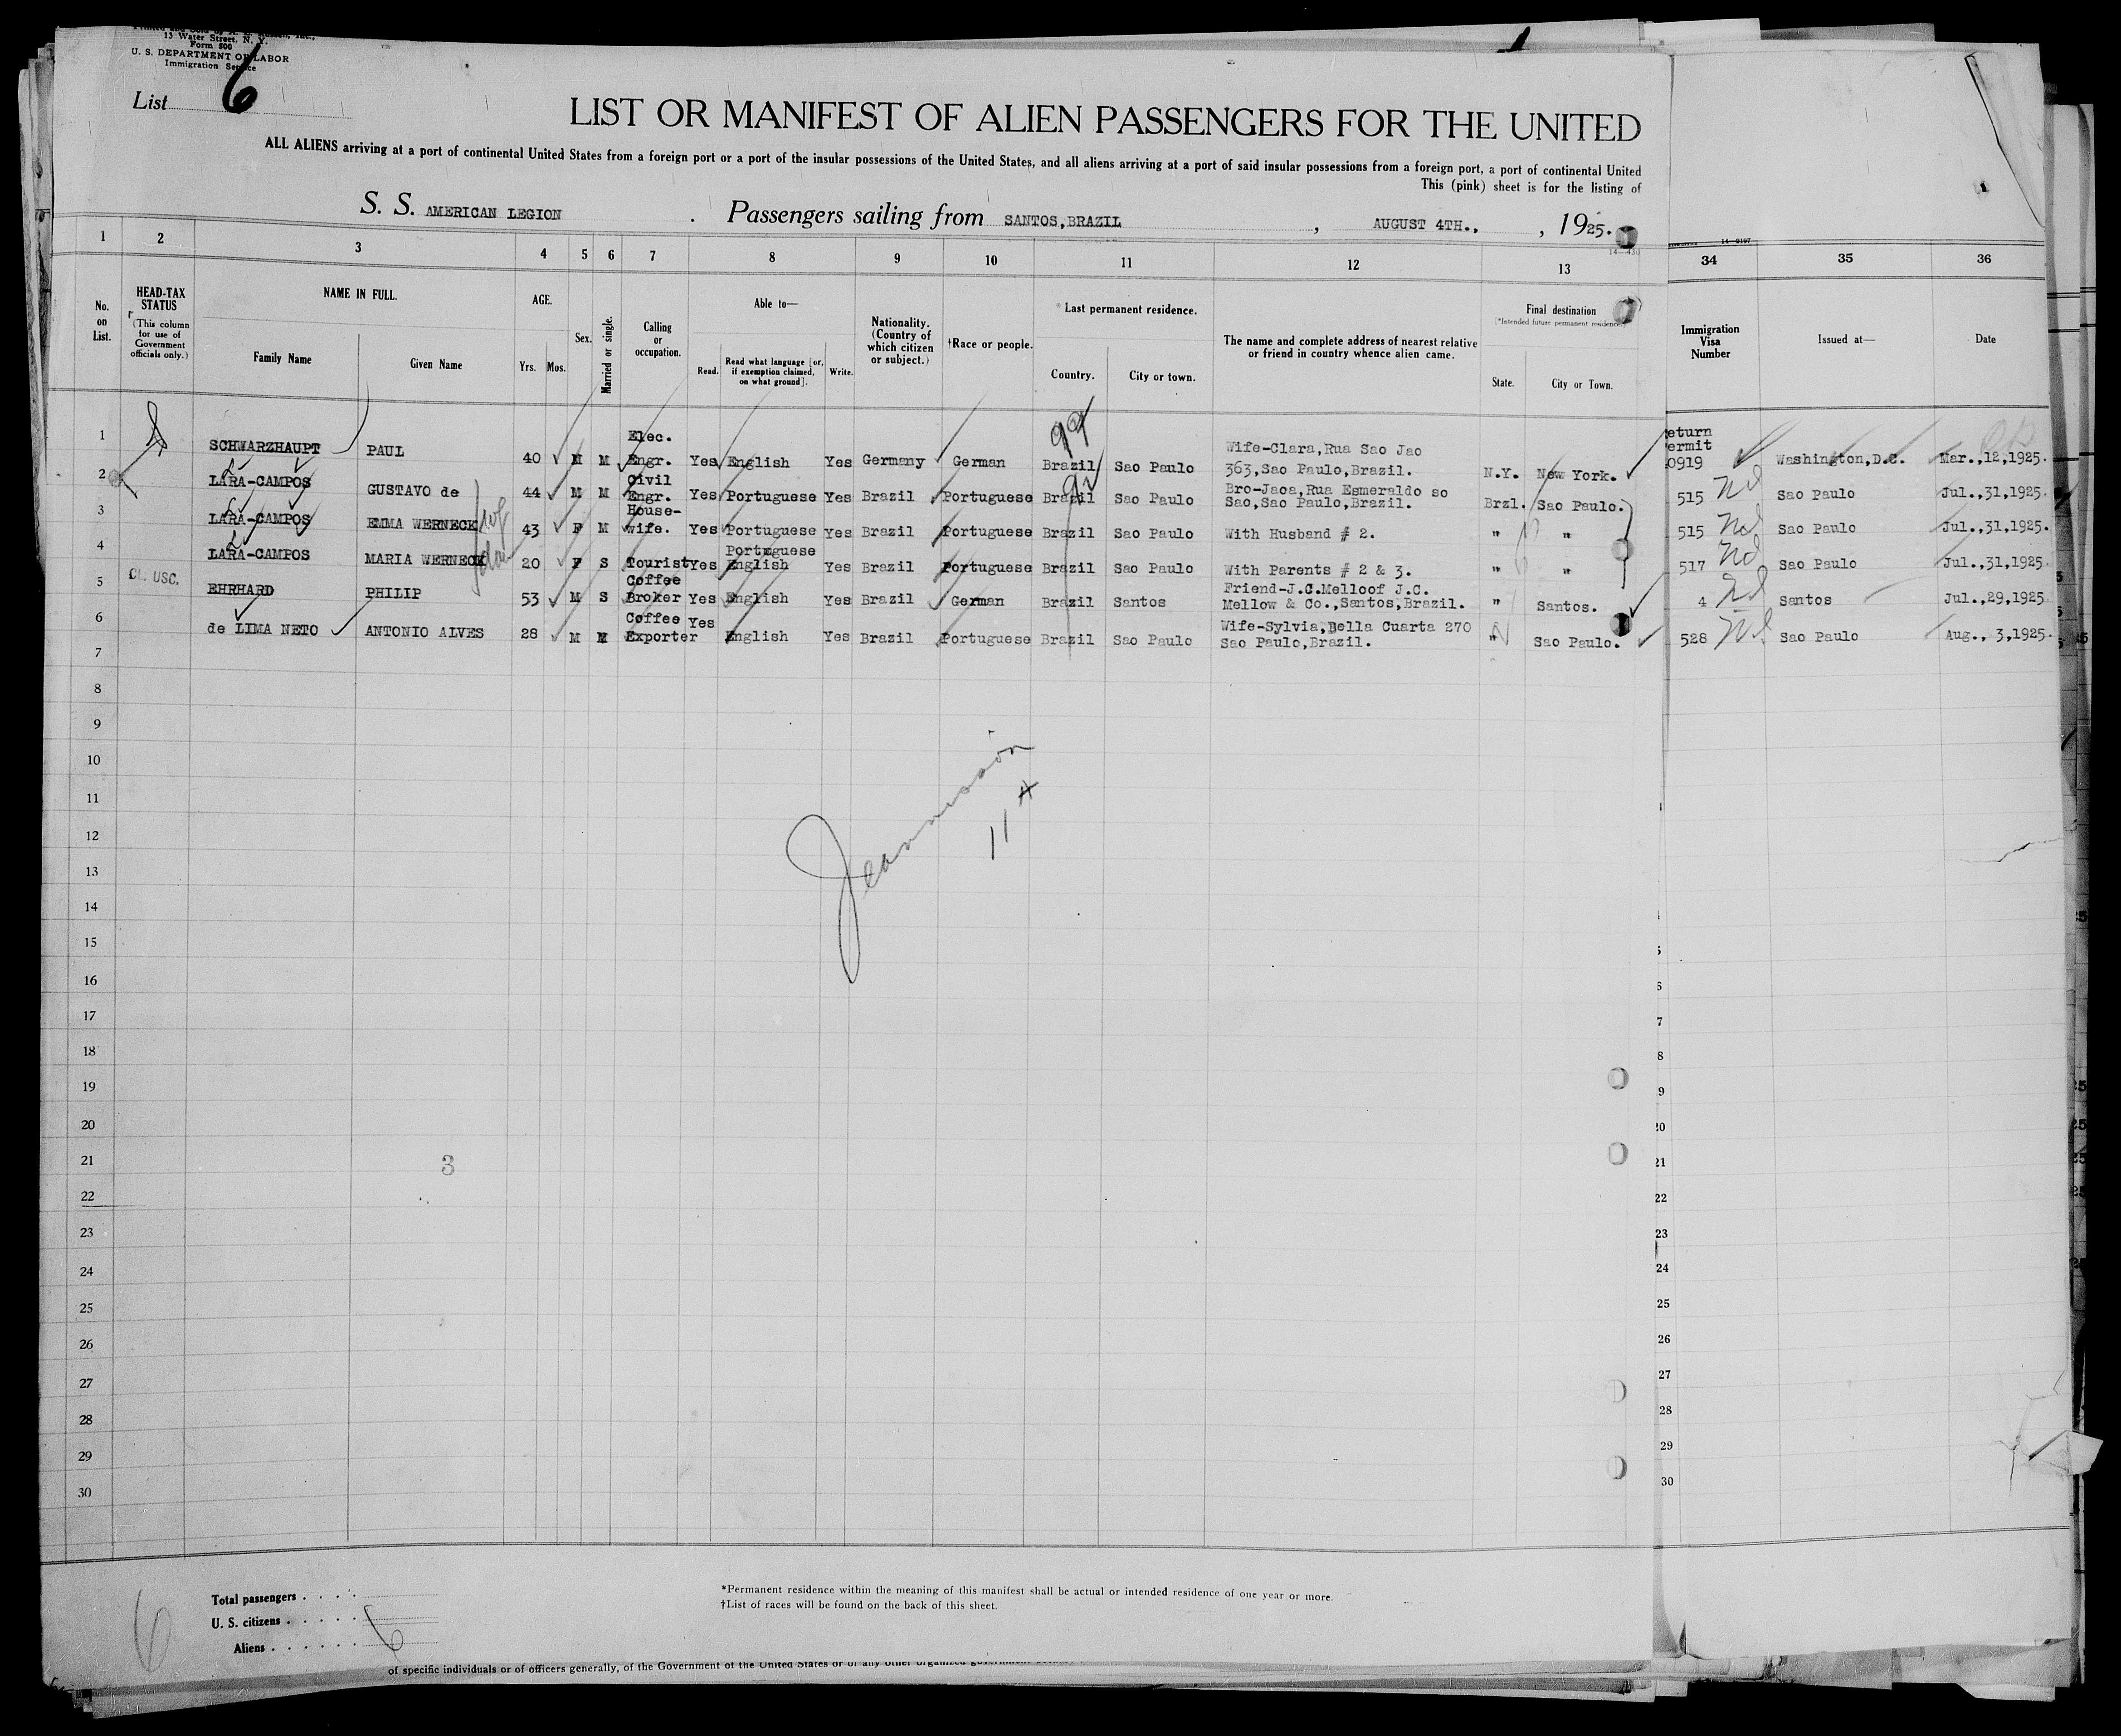 15 Water Street, N. Y.
Form 500
U. S. DEPARTMENT OF LABOR
Immigration Service
List 6
LIST OR MANIFEST OF ALIEN PASSENGERS FOR THE UNITED
ALL ALIENS arriving at a port of continental United States from a foreign port or a port of the insular possessions of the United States, and all aliens arriving at a port of said insular possessions from a foreign port, a port of continental United
This (pink) sheet is for the listing of
S. S. AMERICAN LEGION . Passengers sailing from SANTOS,BRAZIL , AUGUST 4TH., , 1925.
1 2 3 4 5 6 7 8 9 10 11 12 13 34 35 36
No. on List.
HEAD-TAX STATUS (This column for use of Government officials only.)
NAME IN FULL.
Family Name Given Name
AGE.
Yrs. Mos.
Sex.
Married or single.
Calling or occupation.
Able to—
Read. Read what language [or, if exemption claimed, on what ground]. Write.
Nationality. (Country of which citizen or subject.)
†Race or people.
*Last permanent residence.
Country. City or town.
The name and complete address of nearest relative or friend in country whence alien came.
Final destination
(*Intended future permanent residence)
State. City or Town.
Immigration Visa Number
Issued at—
Date
1 SCHWARZHAUPT PAUL 40 M M Elec. Engr. Yes English Yes Germany German Brazil Sao Paulo Wife-Clara,Rua Sao Jao 363,Sao Paulo,Brazil. N.Y. New York. eturn ermit 0919 Washington,D.C. Mar.,12,1925.
2 LARA-CAMPOS GUSTAVO de 44 M M Civil Engr. Yes Portuguese Yes Brazil Portuguese Brazil Sao Paulo Bro-Jaoa,Rua Esmeraldo so Sao,Sao Paulo,Brazil. Brzl. Sao Paulo. 515 Sao Paulo Jul.,31,1925.
3 LARA-CAMPOS EMMA WERNECK 43 F M House-wife. Yes Portuguese Yes Brazil Portuguese Brazil Sao Paulo With Husband # 2. " " 515 Sao Paulo Jul.,31,1925.
4 LARA-CAMPOS MARIA WERNECK 20 F S Tourist Yes Portuguese English Yes Brazil Portuguese Brazil Sao Paulo With Parents # 2 & 3. " " 517 Sao Paulo Jul.,31,1925.
5 CL. USC. EHRHARD PHILIP 53 M S Coffee Broker Yes English Yes Brazil German Brazil Santos Friend-J.C.Melloof J.C. Mellow & Co.,Santos,Brazil. " Santos. 4 Santos Jul.,29,1925
6 de LIMA NETO ANTONIO ALVES 28 M M Coffee Exporter Yes English Yes Brazil Portuguese Brazil Sao Paulo Wife-Sylvia,Bella Cuarta 270 Sao Paulo,Brazil. " Sao Paulo. 528 Sao Paulo Aug., 3,1925.
7
8
9
10
11
12
13
14
15
16
17
18
19
20
21
22
23
24
25
26
27
28
29
30
3
Total passengers
U. S. citizens
Aliens 6
6
*Permanent residence within the meaning of this manifest shall be actual or intended residence of one year or more.
†List of races will be found on the back of this sheet.
of specific individuals or of officers generally, of the Government of the United States or of any other organized